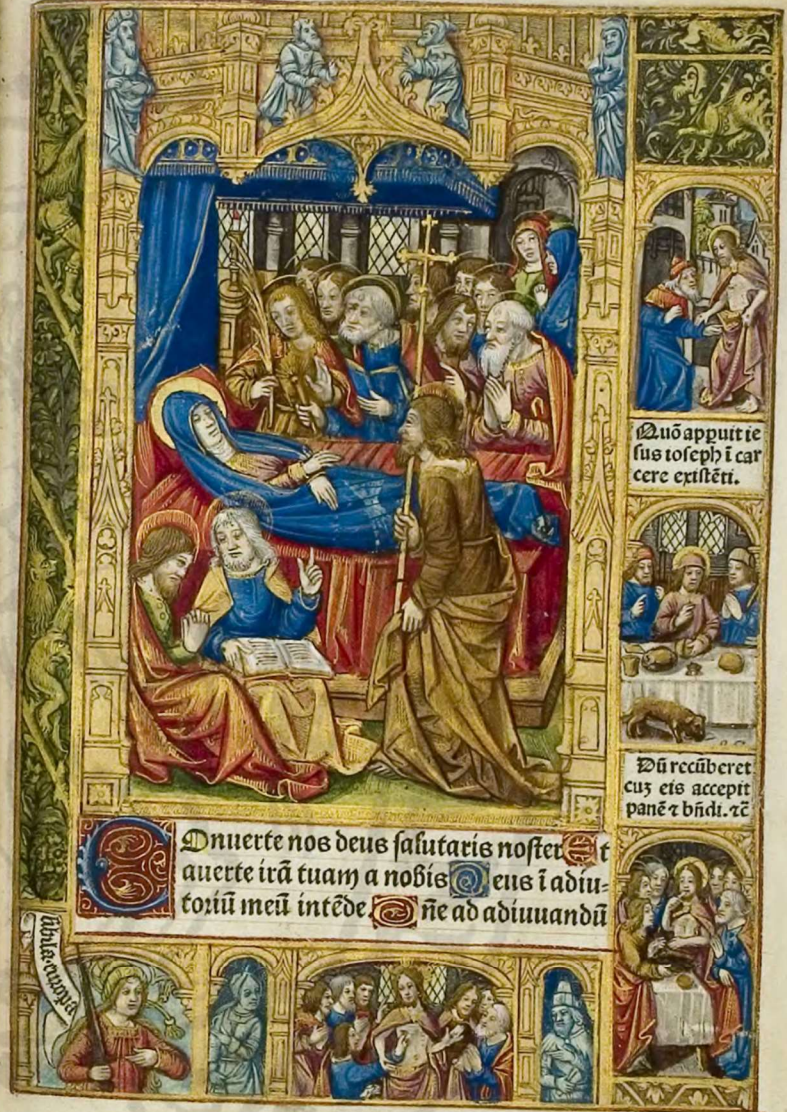 Quō appuit ie
sus ioseph ī car
cere existēti.
Dū recūberet
cuʒ eis accepit
panē ⁊ bñdi. ⁊c̄
COnuerte nos deus salutaris noster Et
auerte irā tuam a nobis Deus ī adiu-
toriū meū intēde. Dñe ad adiuuandū
europa